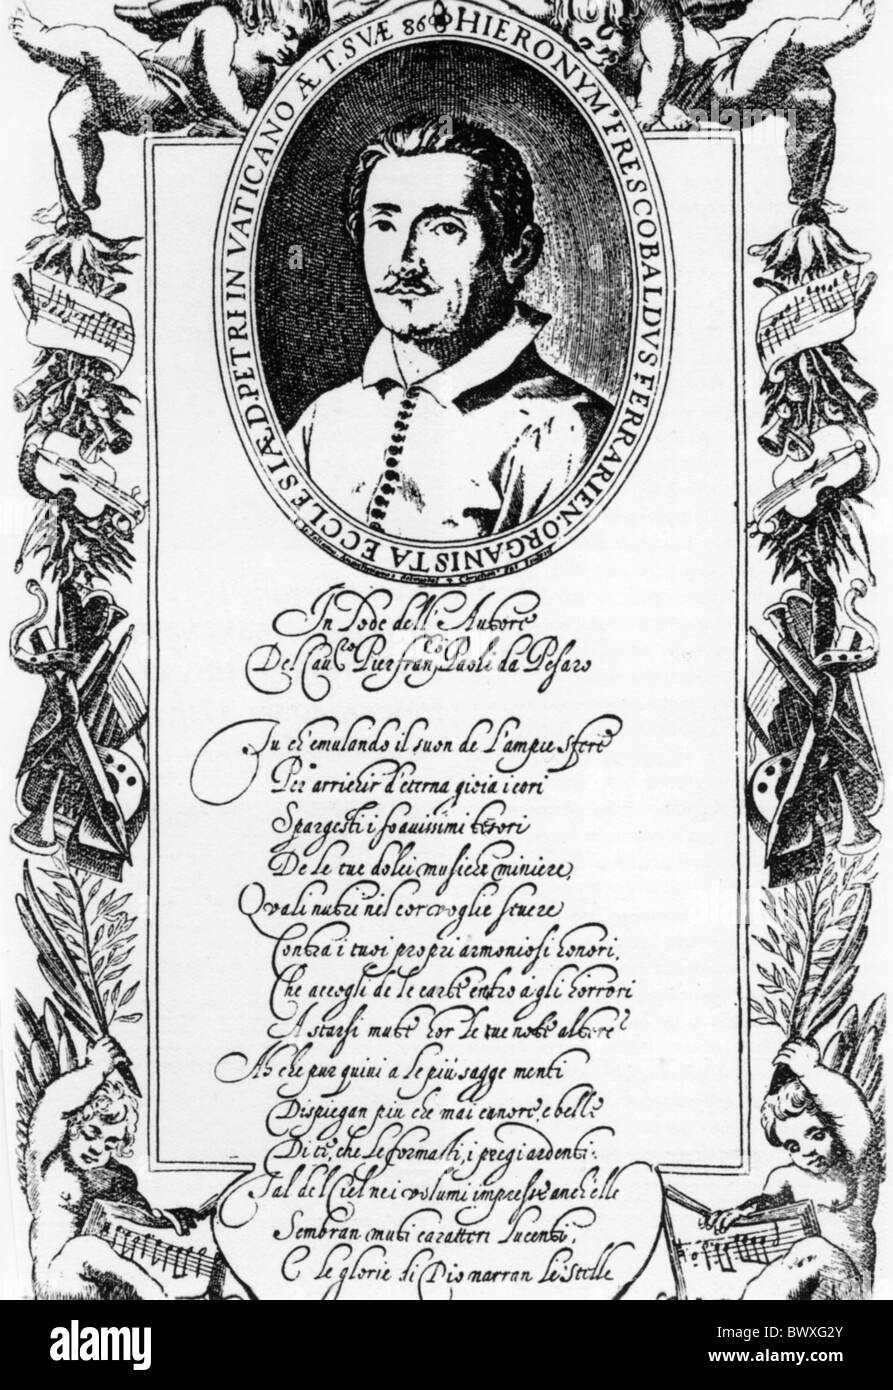 HIERONYM' FRESCOBALDVS FERRARIEN. ORGANISTA ECCLESIÆ D. PETRI IN VATICANO ÆT. SVÆ 86
In Lode dell' Autore
Del Cau.ro Pier fran.co Paoli da Pesaro
Tu ch' emulando il suon de l'ampie sfere
Per arrichir d'eterna gioia i cori
Spargesti i soauissimi tesori
De le tue dolci musiche miniere,
Quali nutri nel cor voglie seuere
Contra i tuoi propri armoniosi honori,
Che accogli de le carte entro a gli horrori
A starsi mute hor le tue note altere?
Ah che pur quiui a le più sagge menti
Dispiegan piu che mai canore, e belle
Di te, che le formasti, i pregi ardenti.
Tal del Ciel nei volumi impresse anch' elle
Sembran muti caratteri lucenti,
E le glorie di Dio narran le stelle
a alamy
alamy
Image ID: BWXG2Y
www.alamy.com